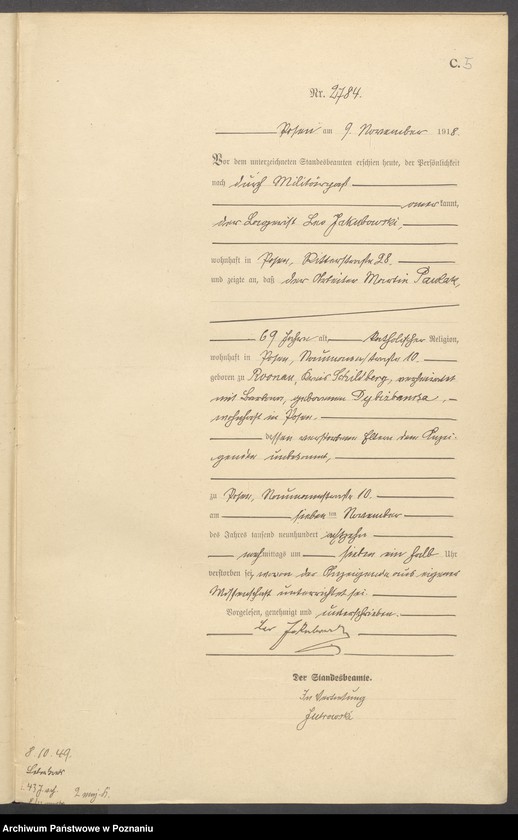 C. 5
Nr. 2784.
Posen am 9. November 1918.
Vor dem unterzeichneten Standesbeamten erschien heute, der Persönlichkeit
nach durch Militärpaß
anerkannt,
der Lagerist Leo Jakubowski,
wohnhaft in Posen, Ritterstraße 28.
und zeigte an, daß der Arbeiter Martin Pawlak,
69 Jahre alt, katholischer Religion,
wohnhaft in Posen, Naumannstraße 10.
geboren zu Kreis Schildberg, verheiratet
mit Barbara, geborenen
wohnhaft in Posen.
dessen verstorbene Eltern dem Anzei-
genden unbekannt,
zu Posen, Naumannstraße 10.
am sieben ten November
des Jahres tausend neunhundert achtzehn
nachmittags um sieben ein halb Uhr
verstorben sei, wovon der Anzeigende aus eigener
Wissenschaft unterrichtet sei.
Vorgelesen, genehmigt und unterschrieben.
Leo Jakubowski
Der Standesbeamte.
In Vertretung
8. 10. 49.
437
Archiwum Państwowe w Poznaniu